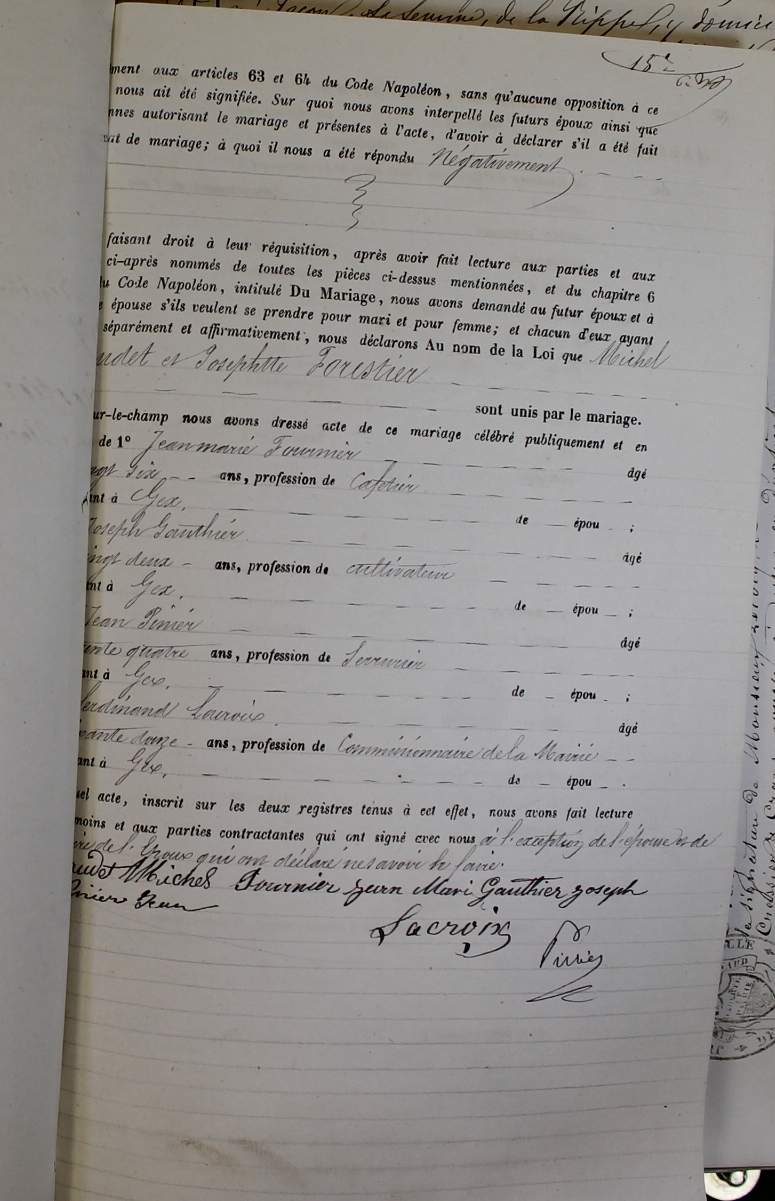 de la Rippe, y domici
15e
ment aux articles 63 et 64 du Code Napoléon, sans qu'aucune opposition à ce
nous ait été signifiée. Sur quoi nous avons interpellé les futurs époux ainsi que
nnes autorisant le mariage et présentes à l'acte, d'avoir à déclarer s'il a été fait
at de mariage; à quoi il nous a été répondu Négativement.
faisant droit à leur réquisition, après avoir fait lecture aux parties et aux
ci-après nommés de toutes les pièces ci-dessus mentionnées, et du chapitre 6
du Code Napoléon, intitulé Du Mariage, nous avons demandé au futur époux et à
e épouse s'ils veulent se prendre pour mari et pour femme; et chacun d'eux ayant
séparément et affirmativement, nous déclarons Au nom de la Loi que Michel
udet et Josephtte Forestier
sont unis par le mariage.
ur-le-champ nous avons dressé acte de ce mariage célébré publiquement et en
de 1° Jean marié Fournier âgé
ngt six ans, profession de Cafetier
ant à Gex. de épou ;
Joseph Gauthier âgé
ingt deux ans, profession de cultivateur
nt à Gex. de épou ;
Jean Pinier âgé
ente quatre ans, profession de Serrurier
ant à Gex. de épou ;
ferdinand Lacroix. âgé
ante douze ans, profession de Commissionnaire de la Mairie
ant à Gex. de épou .
uel acte, inscrit sur les deux registres tenus à cet effet, nous avons fait lecture
moins et aux parties contractantes qui ont signé avec nous à l'exception de l'épouse et de
re de l'Epoux qui ont déclaré ne savoir le faire.
Michel Fournier jean Mari Gauthier joseph
inier Jean
Lacroix
la signature de Monsieur